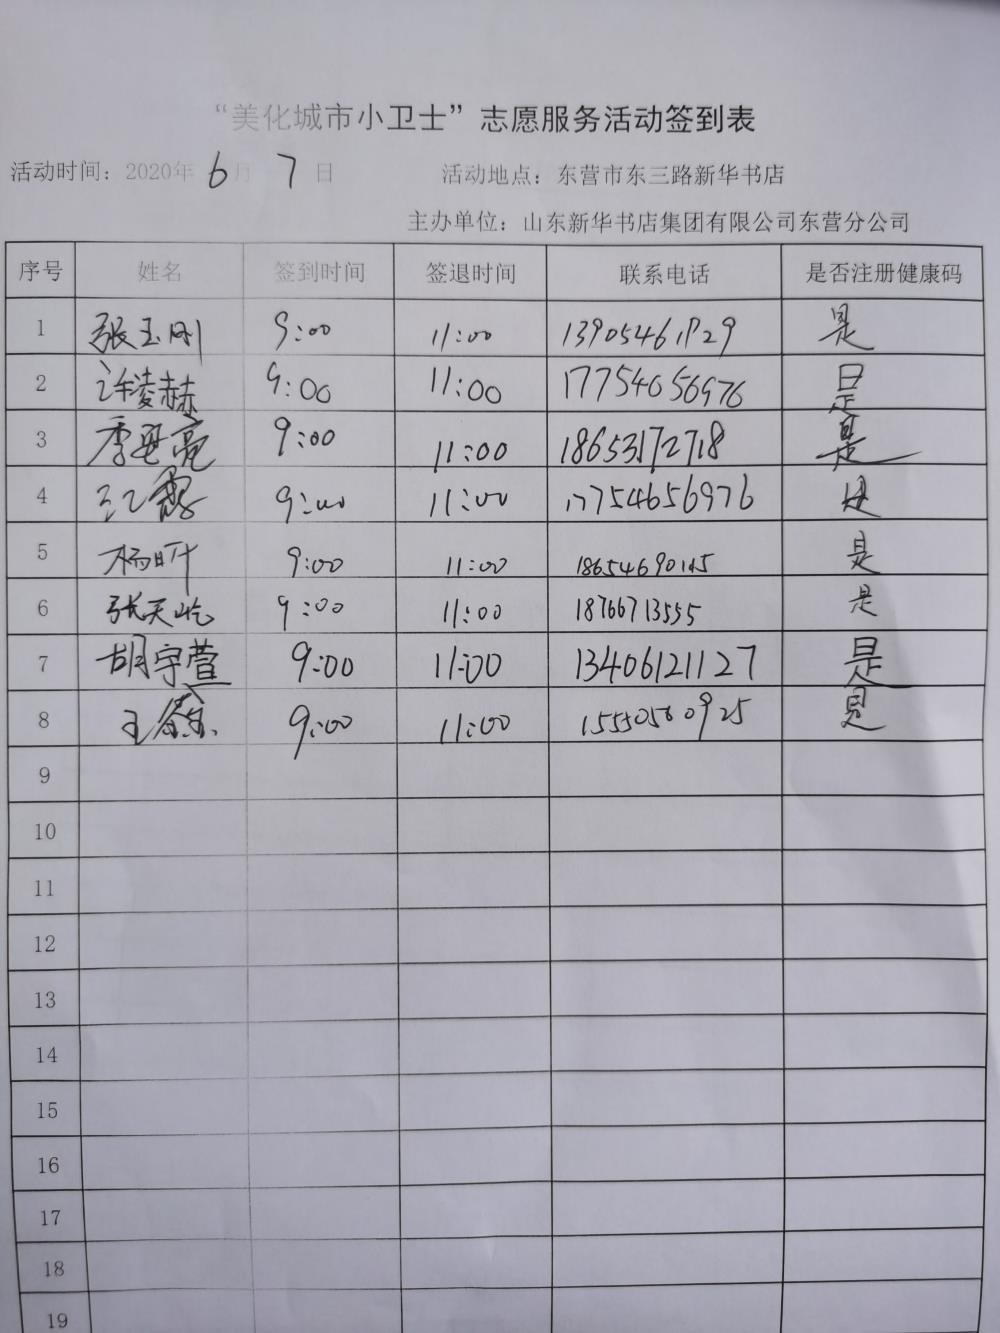 “美化城市小卫士”志愿服务活动签到表
活动时间：2020年 6月 7日 活动地点：东营市东三路新华书店
主办单位：山东新华书店集团有限公司东营分公司
序号 姓名 签到时间 签退时间 联系电话 是否注册健康码
1 张玉刚 9:00 11:00 是
2 许凌赫 9:00 11:00 17754656976 是
3 亮 9:00 11:00 18653172718 是
4 9:00 11:00 17754656976 是
5 杨昕 9:00 11:00 是
6 张天屹 9:00 11:00 18766713555 是
7 胡宇萱 9:00 11:00 13406121127 是
8 王 9:00 11:00 15550560925 是
9
10
11
12
13
14
15
16
17
18
19